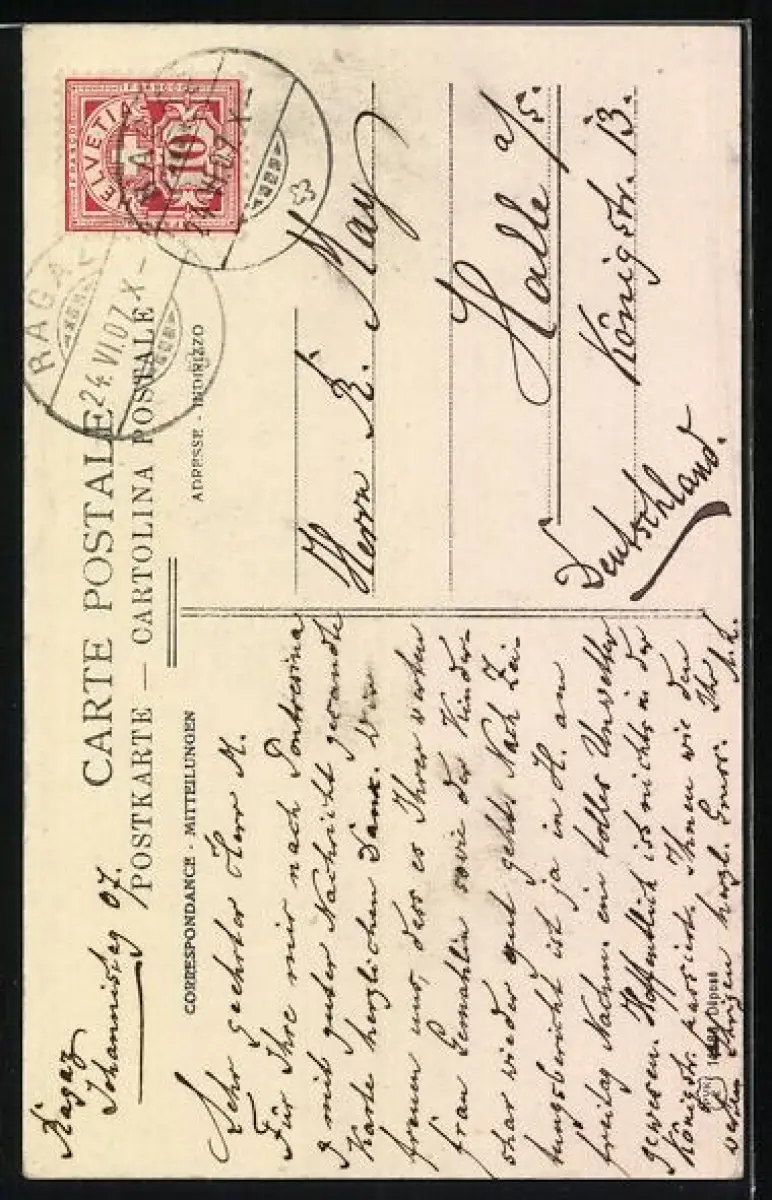 CARTE POSTALE
POSTKARTE — CARTOLINA POSTALE
CORRESPONDANCE - MITTEILUNGEN
ADRESSE - INDIRIZZO
FRANCO
HELVETIA
10
RAGAZ
24.VI.07.X-
24.VI.07.X-
Ragaz
Johannistag 07.
Sehr geehrter Herr M.
Für Ihre mir nach Pontresina
mit guter Nachricht gesandte
Karte herzlichen Dank. Wir
freuen uns, dass es Ihrer werten
Frau Gemahlin sowie der Kinder-
schar wieder gut geht. Nach Zei-
tungsbericht ist ja in H. am
Freitag Nachm. ein tolles Unwetter
gewesen. Hoffentlich ist nichts in der
Königstr. passiert. Ihnen wie den
werten Ihrigen herzl. Ihr
Herrn R. May
Halle a/S.
Königstr. 13.
Deutschland.
Déposé